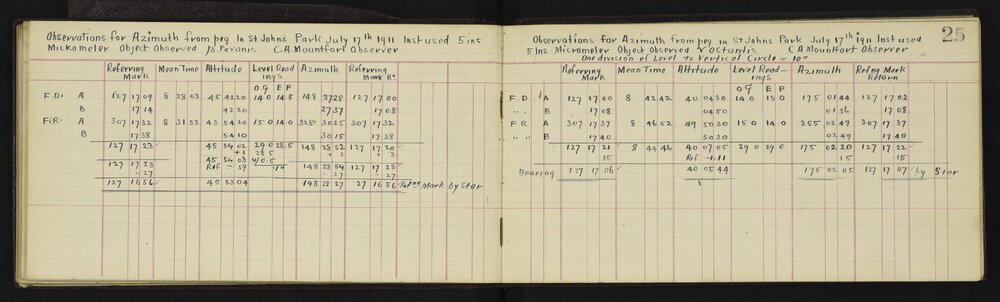 Observations for Azimuth from peg in St Johns Park July 17th 1911 Inst used 5 ins
Mickometer Object Observed β Pavonis. C.A. Mountfort Observer
Referring Mark Mean Time Altitude Level Readings Azimuth Referring Mark Rn
O E
F.D. A 127 17 09 8 28 03 45 42 20 14 0 14 5 148 27 28 127 17 00
B 17 14 42 20 27 37 17 08
F.R. A 307 17 32 8 31 53 43 54 20 15 0 14 0 328 30 25 307 17 32
B 17 38 54 10 30 15 17 38
127 17 23 45 54 02 29 0 28 5 148 28 52 127 17 20
+1 28 5 + 2 3
127 17 23 45 54 03 4/0.5 148 28 54 127 17 23
- 27 Ref - 59 - 27 - 27
127 16 56 45 53 04 148 28 27 127 16 56 Mark by Star
25
Observations for Azimuth from peg in St Johns Park July 17th 1911 Inst used
5 Ins Micrometer Object Observed γ Octantis C A Mountfort Observer
One division of Level to Vertical Circle = 10"
Referring Mark Mean Time Altitude Level Readings Azimuth Refng Mark Return
O E
F.D. A 127 17 00 8 42 42 40 04 30 14 0 15 0 175 01 44 127 17 02
B 17 08 04 50 01 56 17 08
F R A 307 17 37 8 46 52 49 50 30 15 0 14 0 355 02 49 307 17 37
" " B 17 40 50 30 02 49 17 40
127 17 21 8 44 46 40 07 05 29 0 29 0 175 02 20 127 17 22
15 Ref -1.11 15 15
Bearing 127 17 06 40 05 44 175 02 05 127 17 07 by Star